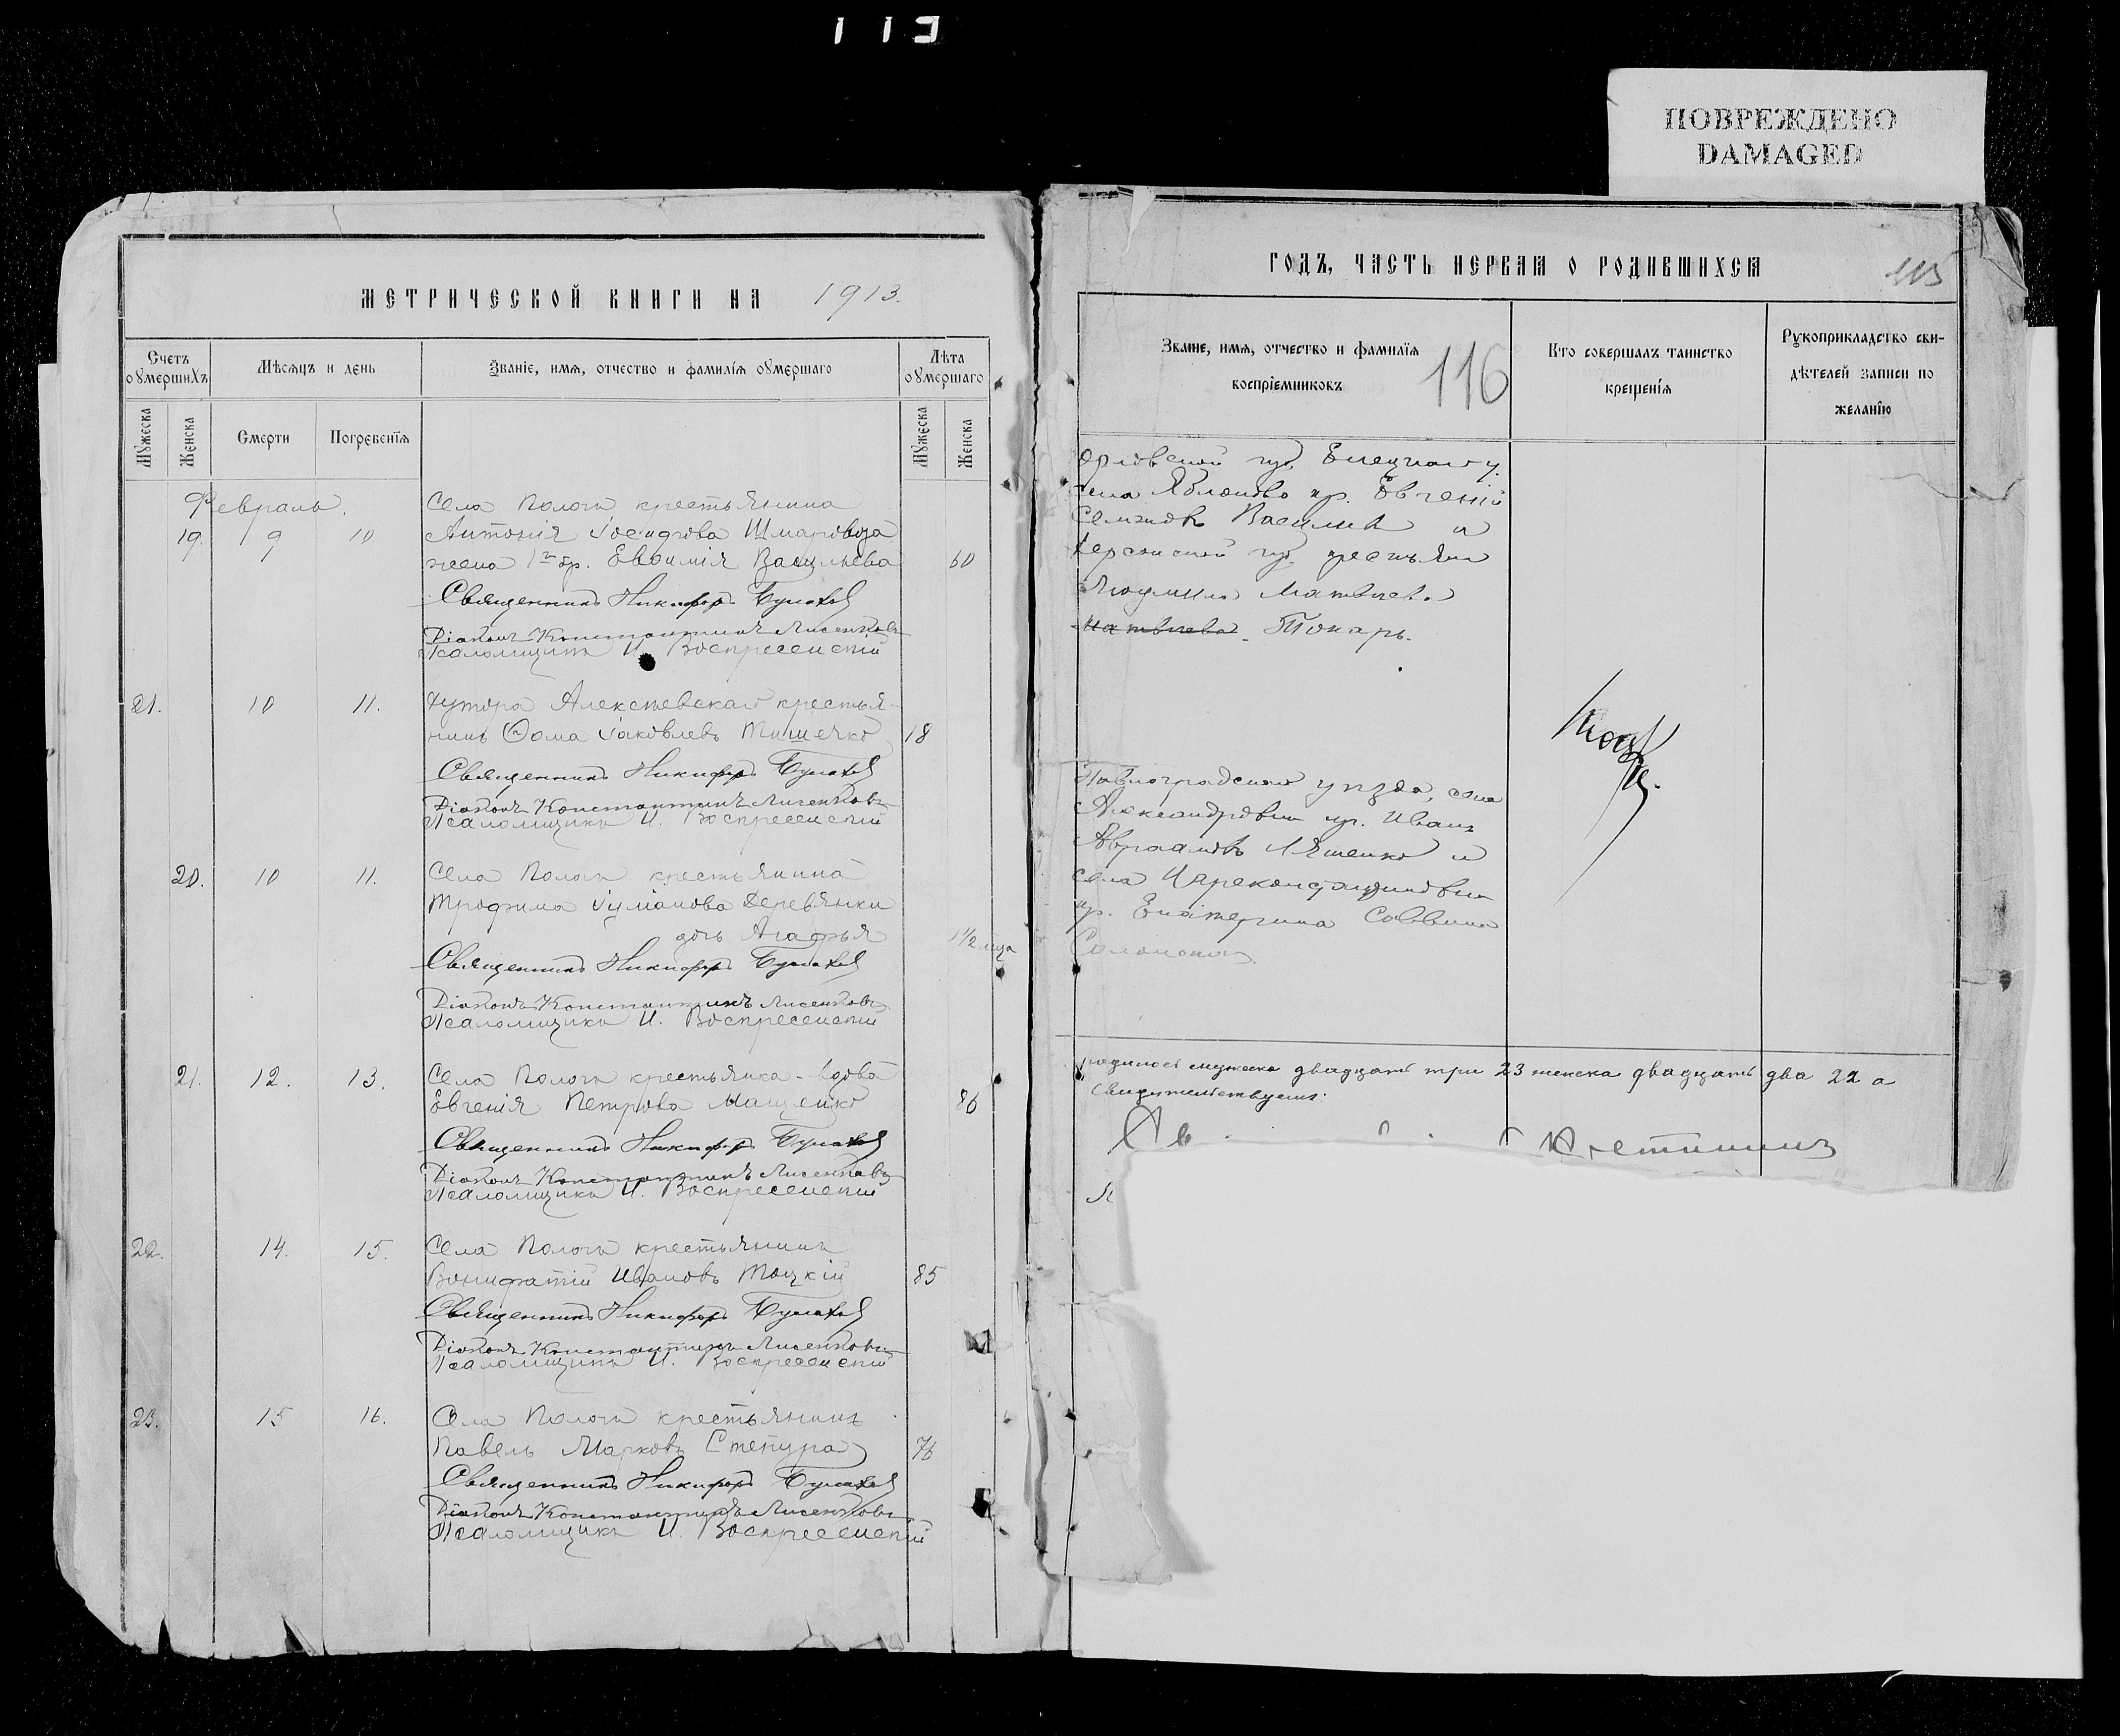 113
ПОВРЕЖДЕНО
DAMAGED
МЕТРИЧЕСКОЙ КНИГИ НА 1913.
Счетъ умершихъ
Мѣсяцъ и день
Званіе, имя, отчество и фамилія умершаго
Лѣта умершаго
Мужеска
Женска
Смерти
Погребенія
Мужеска
Женска
Февраль.
Села Пологи крестьянина
19. 9 10 Антонія Іосифова
жена 1го бр. Евфимія Васильева 60
Священникъ Никифоръ
Діаконъ Константинъ Лисенковъ
Псаломщикъ И. Воскресенскій
21. 10 11. Хутора Алексѣевскаго крестья-
нинъ Ѳома Іаковлевъ Тишечко 18
Священникъ Никифоръ
Діаконъ Константинъ Лисенковъ
Псаломщикъ И. Воскресенскій
20. 10 11. Села Пологи крестьянина
Трофима Деревянки
дочь Агафья 1 1/2 мца
Священникъ Никифоръ
Діаконъ Константинъ Лисенковъ
Псаломщикъ И. Воскресенскій
21. 12. 13. Села Пологи крестьянка-вдова
Евгенія Петрова Мащенко 86
Священникъ Никифоръ
Діаконъ Константинъ Лисенковъ
Псаломщикъ И. Воскресенскій
22. 14. 15. Села Пологи крестьянинъ
Вонифатій Ивановъ Тоцкій 85
Священникъ Никифоръ
Діаконъ Константинъ Лисенковъ
Псаломщикъ И. Воскресенскій
23. 15 16. Села Пологи крестьянинъ
Павелъ Марковъ Степура 76
Священникъ Никифоръ
Діаконъ Константинъ Лисенковъ
Псаломщикъ И. Воскресенскій
ГОДЪ, ЧАСТЬ ПЕРВАЯ О РОДИВШИХСЯ
115
Званіе, имя, отчество и фамилія
воспріемниковъ
116
Кто совершалъ таинство
крещенія
Рукоприкладство сви-
дѣтелей записи по
желанію
Орловской губ. Елецкаго у.
села Яблоново кр. Евгеній
Васильев и
Херсонской губ.
Матвиева
Матвиева. Токарь.
Павлоградскаго уѣзда, села
Александровки кр. Иванъ
Авраамовъ Ляшенко и
села Цареконстантиновки
кр. Екатерина Саввина
родилось мужеска двадцать три 23 женска двадцать два 22 а
свидѣтельствуемъ: